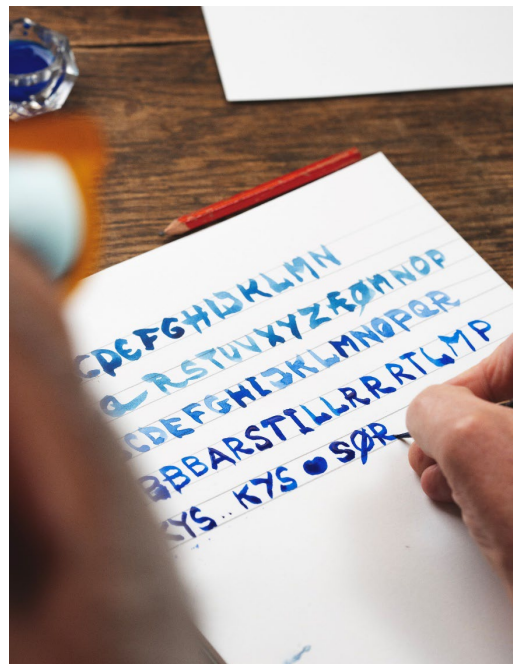 CDEFGHIJKLMN
Q RSTUVXYZÆØMNOP
CDEFGHIJKLMNOPQR
BBBARSTILLRRRTLMP
KYS.. KYS ● SØR